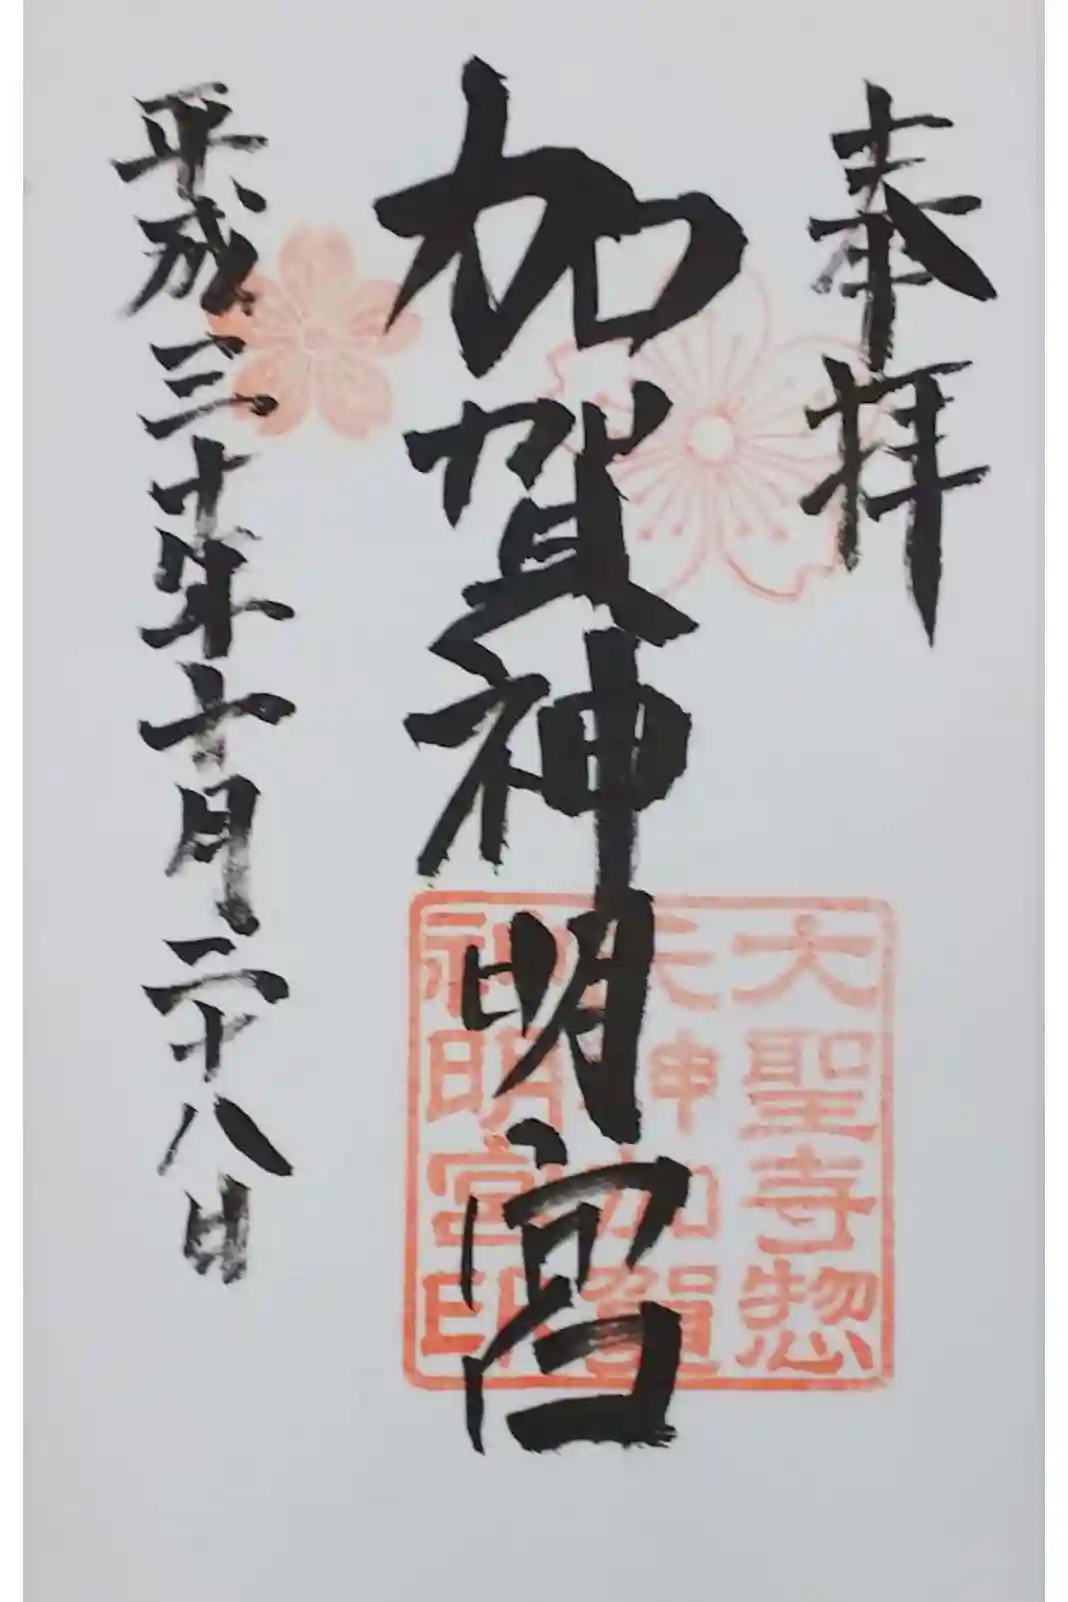 奉拝
加賀神明宮
平成三十年十月二十八日
大聖寺惣
天神加賀
神明宮印